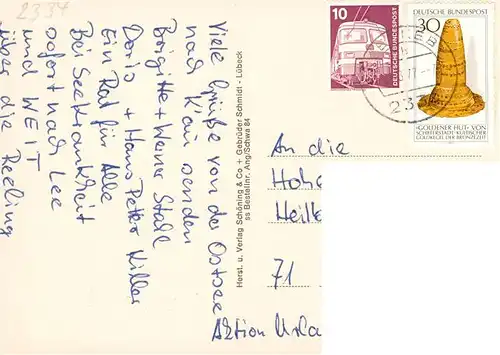 2334
Viele Grüße von der Ostsee
nach K'au senden
Brigitte + Werner Stahl
Doris + Hans Peter Killer
Ein Rat für Alle
Bei Seekrankheit
sofort nach Lee
und WEIT
über die Reeling
Herst. u. Verlag Schöning & Co + Gebrüder Schmidt - Lübeck
ss Bestellnr. Ang/Schwa 84
10
DEUTSCHE BUNDESPOST
DEUTSCHE BUNDESPOST
30
»GOLDENER HUT« VON
SCHIFFERSTADT · KULTISCHER
GOLDKEGEL DER BRONZEZEIT
An die
Hohe
Heilk
71
Aktion Urla